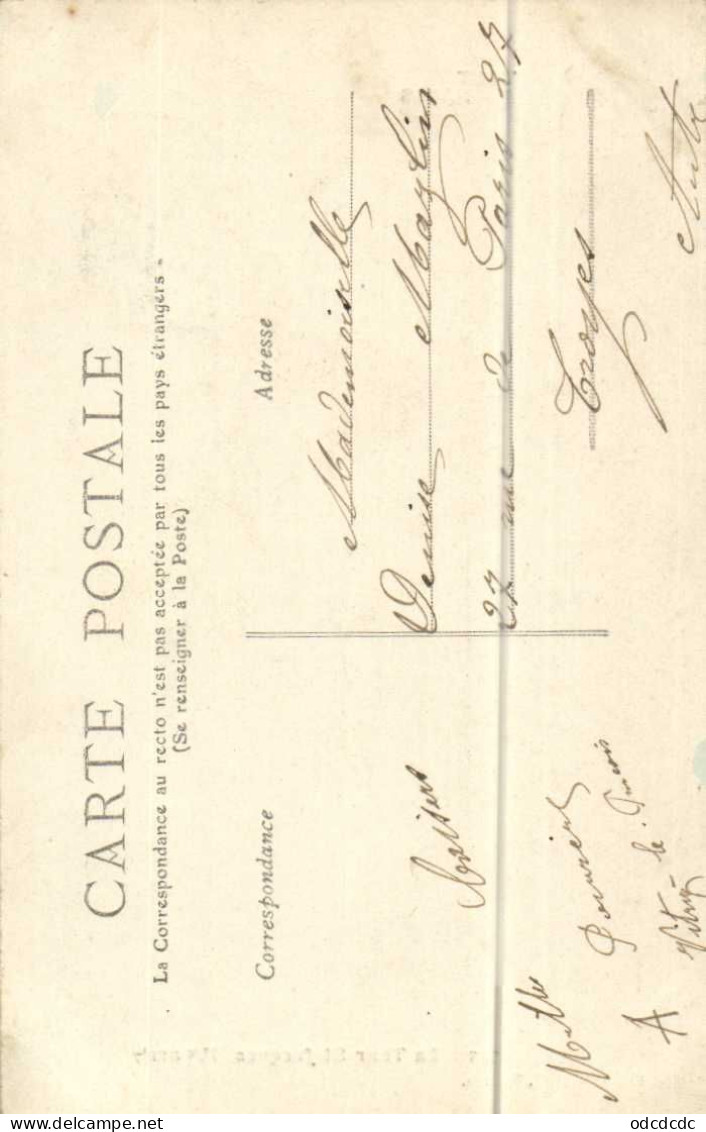 CARTE POSTALE
La Correspondance au recto n'est pas acceptée par tous les pays étrangers -
(Se renseigner à la Poste)
Correspondance
Adresse
Mademoiselle
Denise
27 rue de Paris 27
Troyes
Aube
Baisers
Melles
A Vitry-le-François
odcdcdc